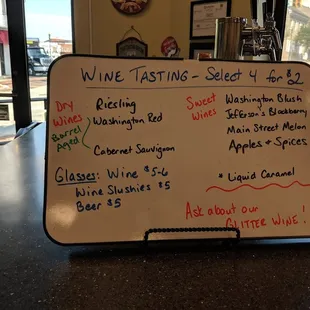 WINE TASTING - SELECT 4 for $2
DRY
WINES
Riesling
Barrel
Aged
Washington Red
Cabernet Sauvignon
Sweet
Wines
Washington Blush
Jefferson's Blackberry
Main Street Melon
Apples & Spices
* Liquid Caramel
GLASSES: Wine $5-6
Wine Slushies $5
Beer $5
Ask about our
GLITTER WINE!